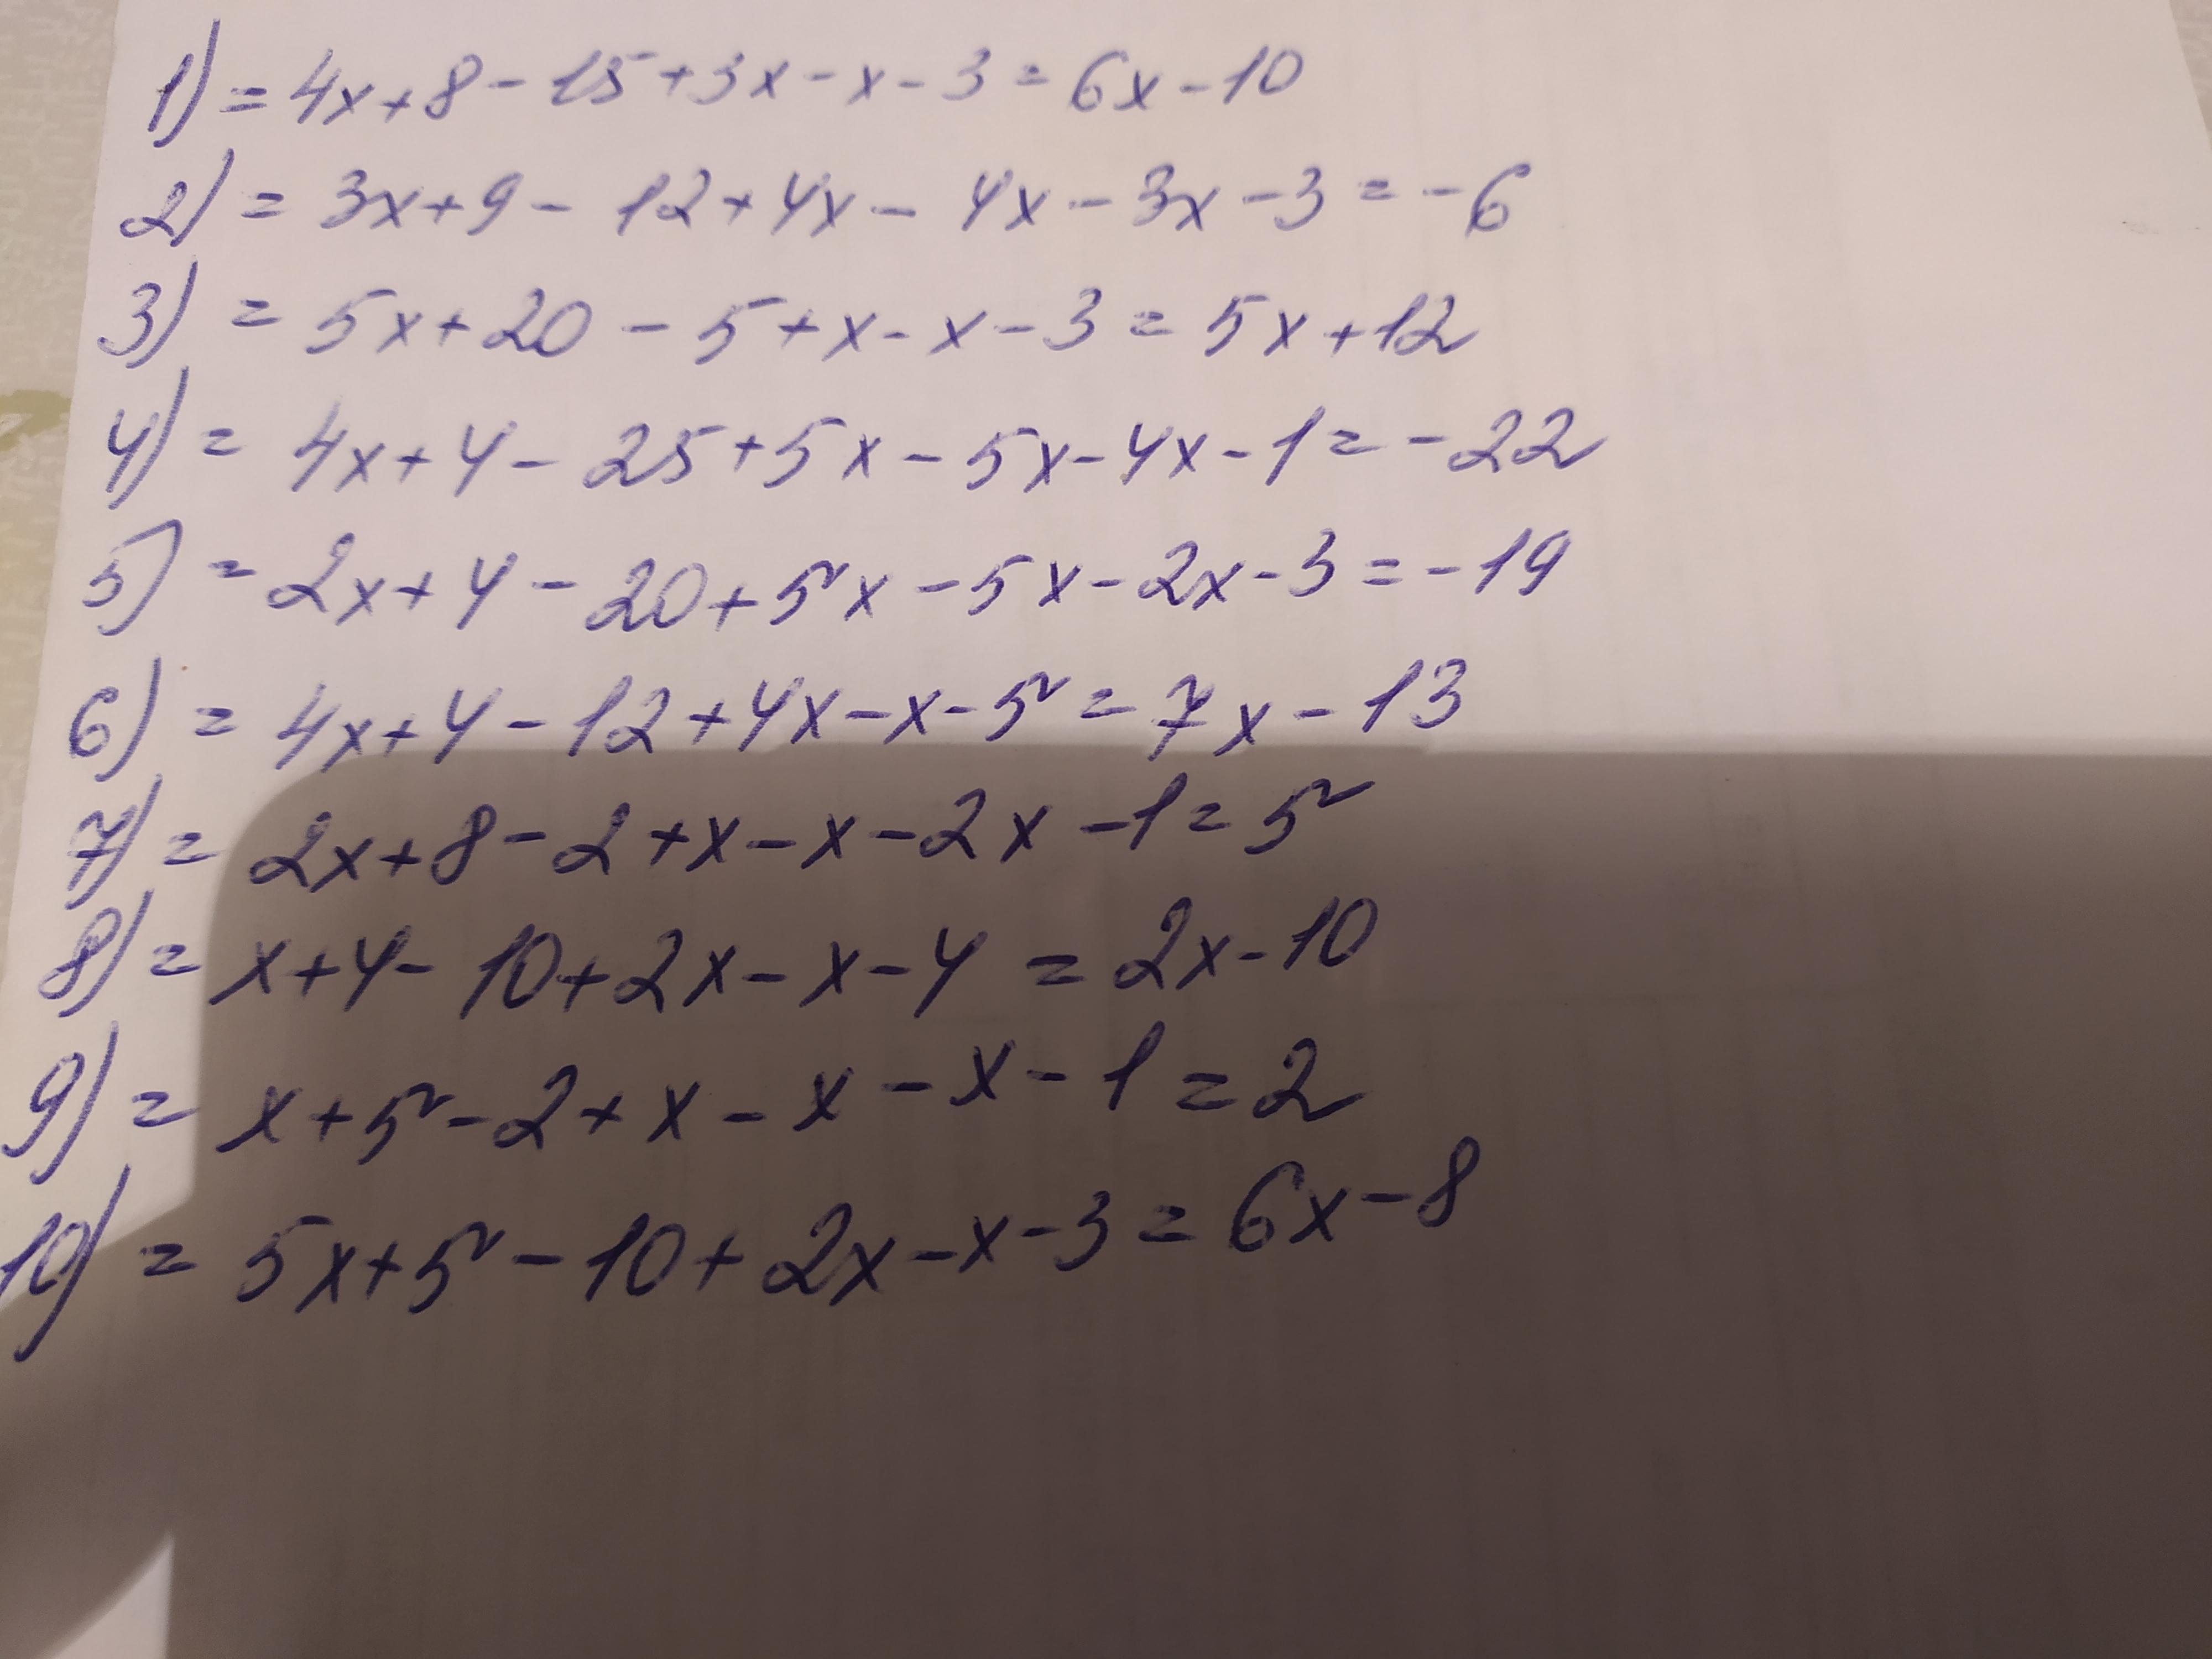 1) = 4x+8-15+3x-x-3=6x-10
2) = 3x+9-12+4x-4x-3x-3=-6
3) = 5x+20-5+x-x-3=5x+12
4) = 4x+4-25+5x-5x-4x-1=-22
5) = 2x+4-20+5x-5x-2x-3=-19
6) = 4x+4-12+4x-x-5=7x-13
7) = 2x+8-2+x-x-2x-1=5
8) = x+4-10+2x-x-4=2x-10
9) = x+5-2+x-x-x-1=2
10) = 5x+5-10+2x-x-3=6x-8